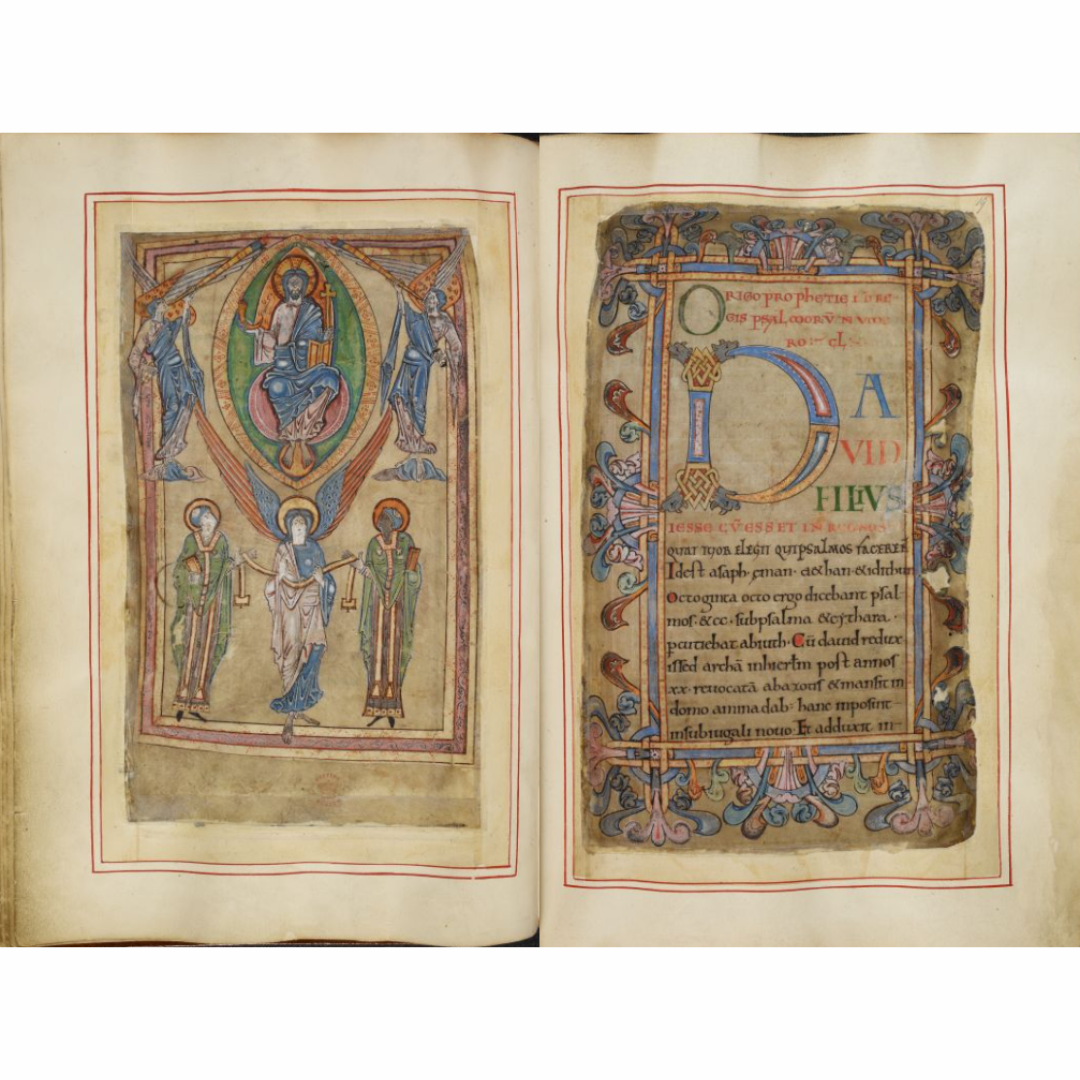 ORIGO PROPhETIE
GIS PSALMORV̄ NVME
RO
DA
VID
FILIVS
IESSE CV̄ ESSET IN REGNO SVO
QVATTVOR ELEGIT QVI PSALMOS FACERENT
Idest asaph· eman· &han· &idithun
Octoginta octo ergo dicebant psal
mos· &cc· subpsalma &cythara·
pcutiebat abiuth· Cū david redux
isset archā inhierlm̄ post annos
xx· revocatā abazotis &mansit in
domo aminadab· hanc inposuit
insubiugali novo· Et adduxit in